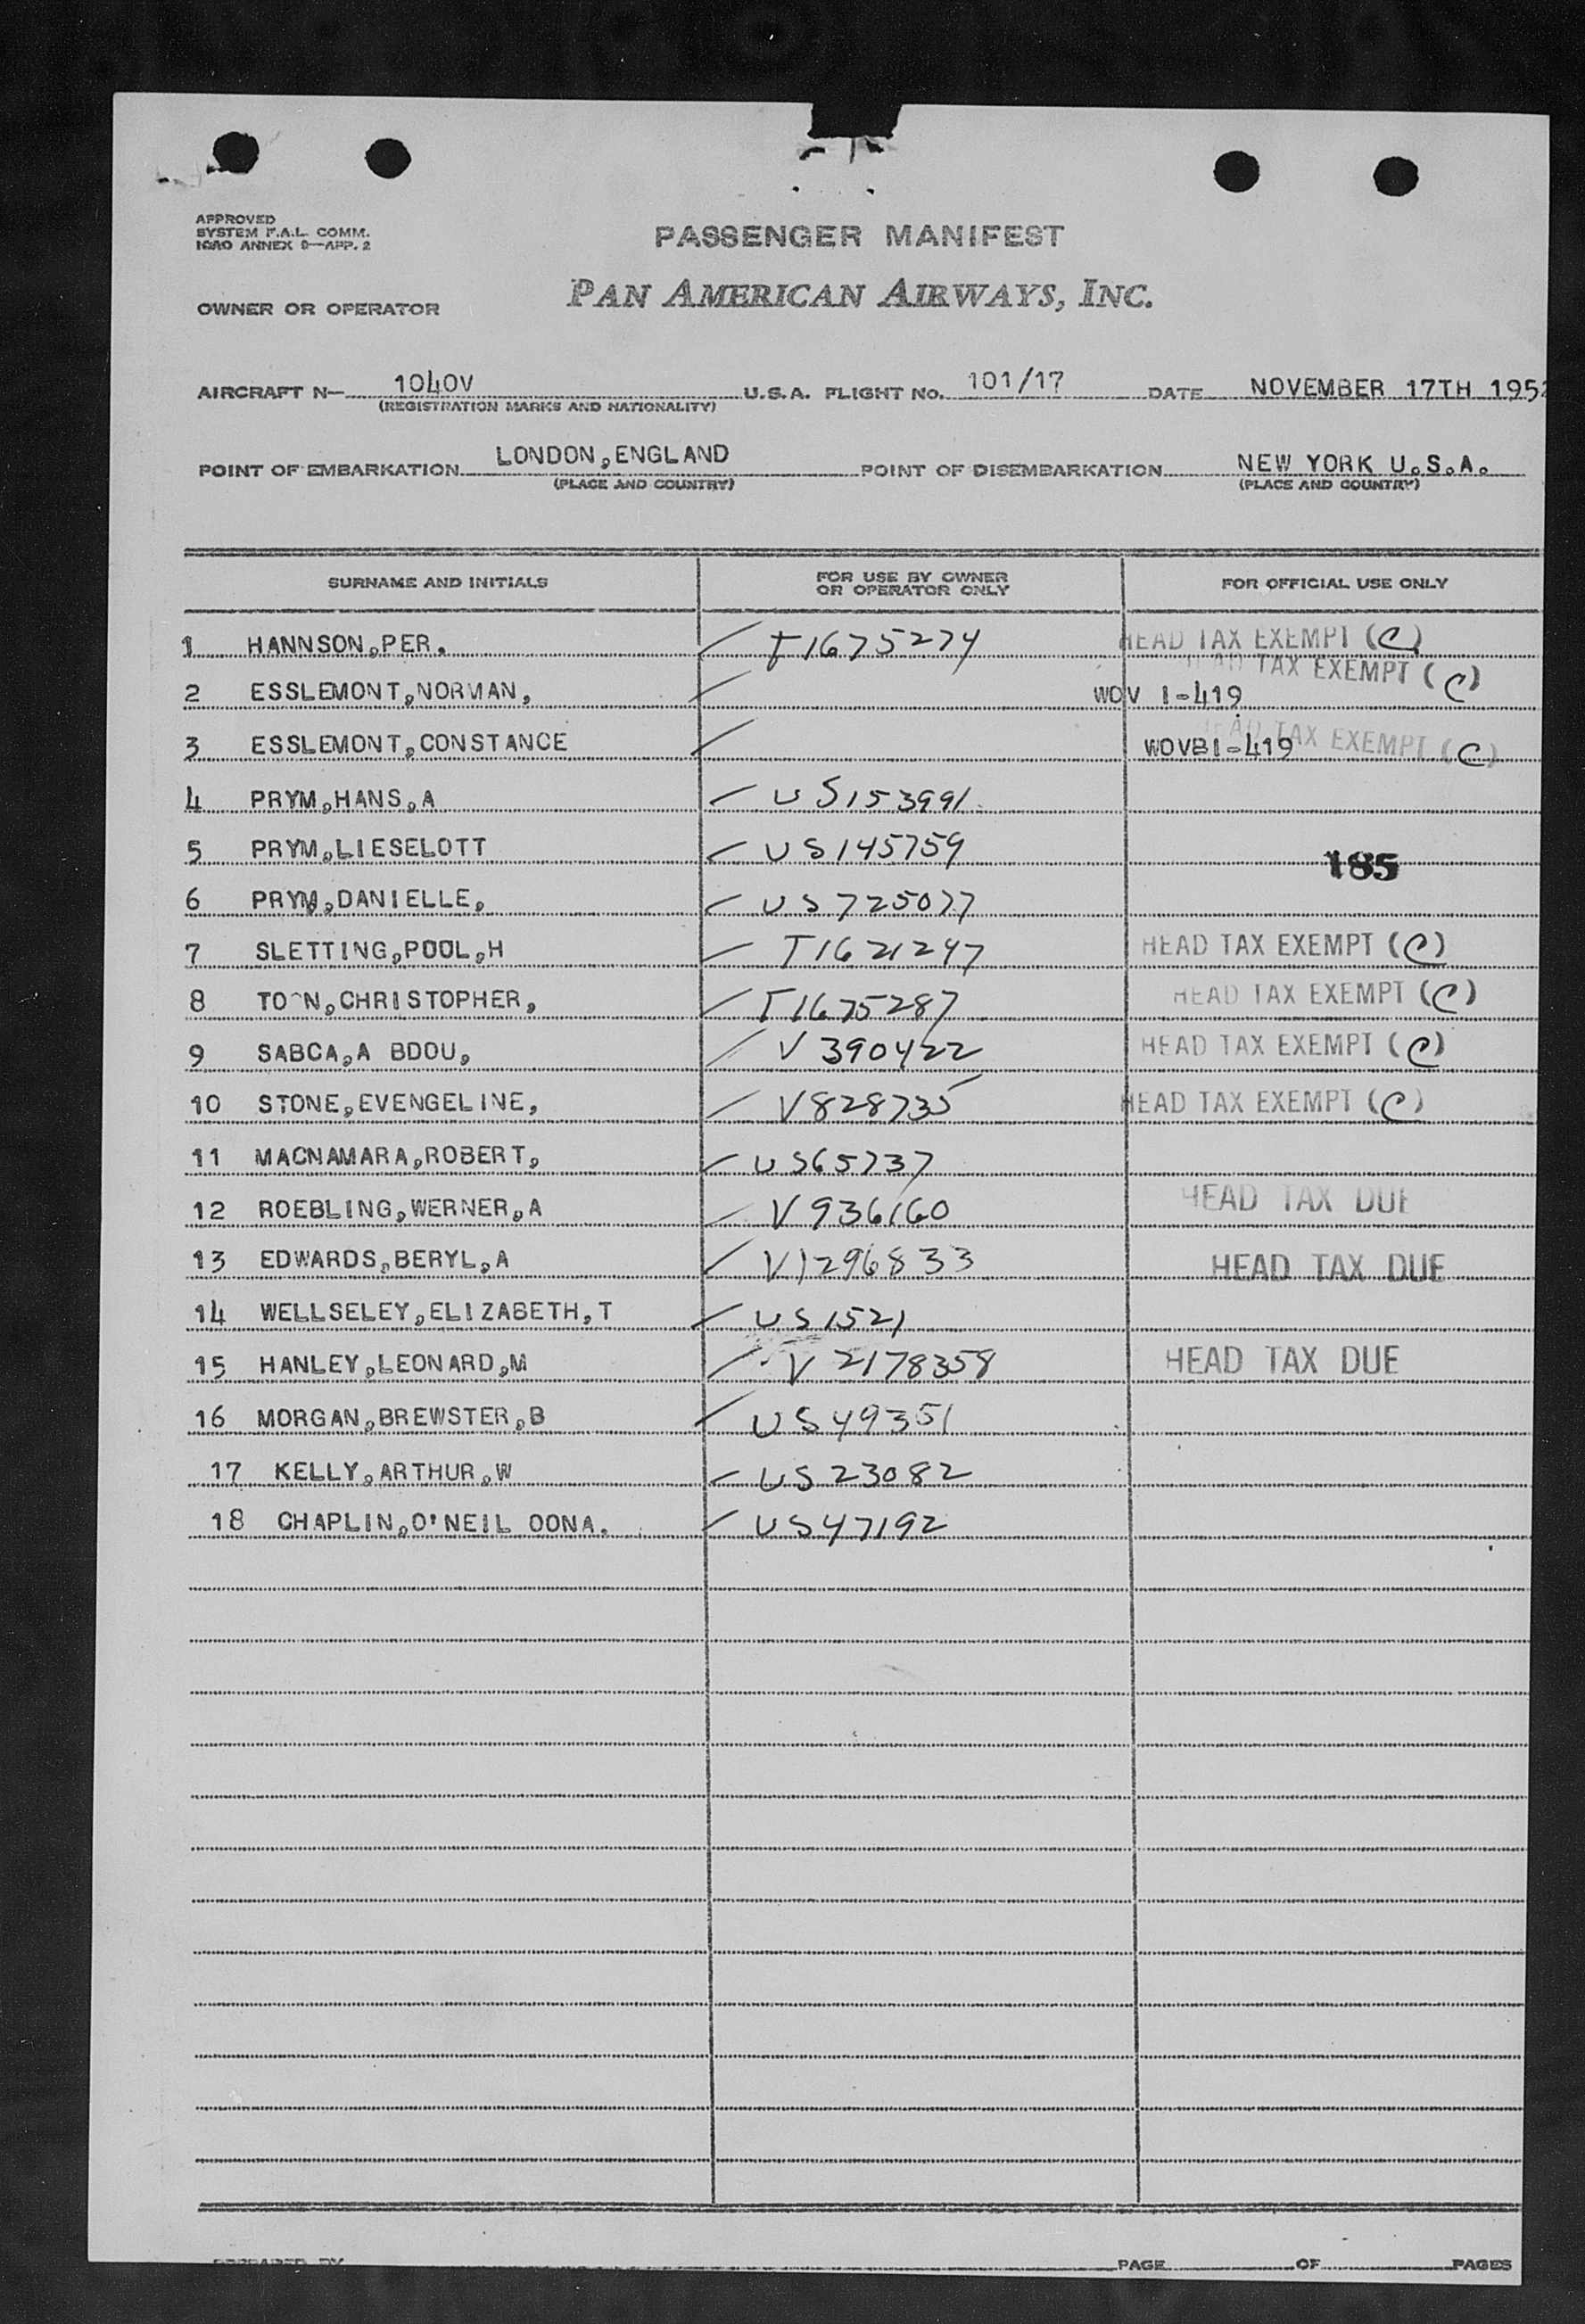 APPROVED
SYSTEM F.A.L. COMM.
ICAO ANNEX 9—APP. 2
PASSENGER MANIFEST
OWNER OR OPERATOR PAN AMERICAN AIRWAYS, INC.
AIRCRAFT N— 1040V U.S.A. FLIGHT NO. 101/17 DATE NOVEMBER 17TH 1952
(REGISTRATION MARKS AND NATIONALITY)
POINT OF EMBARKATION LONDON,ENGLAND POINT OF DISEMBARKATION NEW YORK U.S.A.
(PLACE AND COUNTRY) (PLACE AND COUNTRY)
SURNAME AND INITIALS FOR USE BY OWNER OR OPERATOR ONLY FOR OFFICIAL USE ONLY
1 HANNSON,PER. T1675274 HEAD TAX EXEMPT (C)
2 ESSLEMONT,NORMAN, WOV 1-419 HEAD TAX EXEMPT (C)
3 ESSLEMONT,CONSTANCE WOVB1-419 HEAD TAX EXEMPT (C)
4 PRYM,HANS,A US153991
5 PRYM,LIESELOTT US145759
185
6 PRYM,DANIELLE, US725077
7 SLETTING,POUL,H T1621247 HEAD TAX EXEMPT (C)
8 CHRISTOPHER, T1675287 HEAD TAX EXEMPT (C)
9 SABCA,A BDOU, V390422 HEAD TAX EXEMPT (C)
10 STONE,EVENGELINE, V828735 HEAD TAX EXEMPT (C)
11 MACNAMARA,ROBERT, US65737
12 ROEBLING,WERNER,A V936160 HEAD TAX DUE
13 EDWARDS,BERYL,A V1296833 HEAD TAX DUE
14 WELLSELEY,ELIZABETH,T US1521
15 HANLEY,LEONARD,M V2178358 HEAD TAX DUE
16 MORGAN,BREWSTER,B US49351
17 KELLY,ARTHUR,W US23082
18 CHAPLIN,O'NEIL OONA. US47192
PREPARED BY PAGE OF PAGES